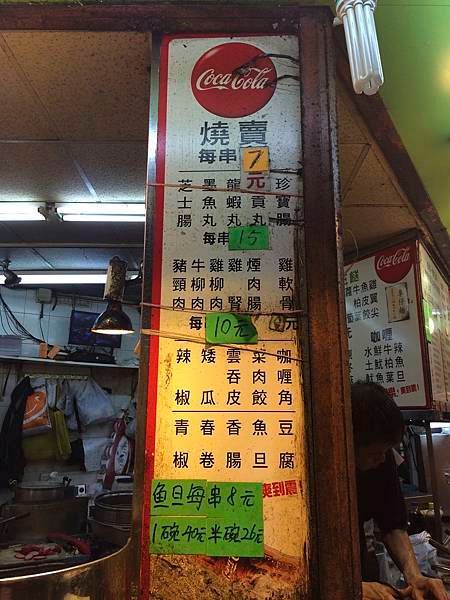 Coca-Cola
燒賣
每串7元
珍寶腸
貢丸
龍蝦丸
墨魚丸
芝士腸
每串15
雞軟骨
煙肉腸
雞腎
雞柳肉
牛柳肉
豬頸肉
每10元元
咖喱角
菜肉餃
雲吞皮
矮瓜
辣椒
豆腐
魚旦
香腸
春卷
青椒
爽到震!
魚旦每串8元
1碗40元半碗26元
Coca-Cola
牛魚雞
柏皮翼
餃尖
咖喱
水鮮牛辣
土魷柏魚
魷魚葉旦
爽到震!